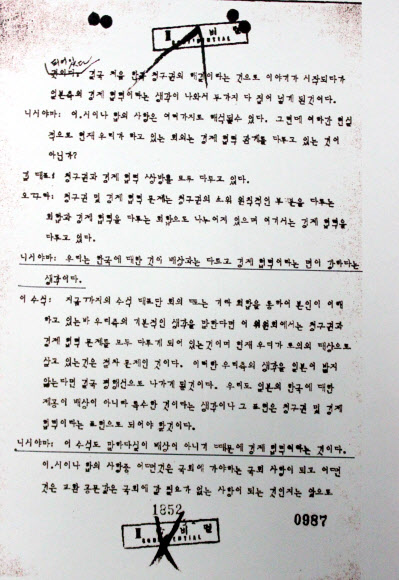 CONFIDENTIAL
결국 처음 한국 청구권의 해결이라는 것으로 이야기가 시작되다가
일본측의 경제 협력이라는 생각이 나와서 두가지 다 짊어 넘게 된것이다.
니시야마: 이.시이나 합의 사항은 여러가지로 해석될수 있다. 그런데 여하간 현실
적으로 현재 우리가 하고 있는 회의는 경제 협력 관계를 다루고 있는 것이
아닌가?
김 대표: 청구권과 경제 협력 상방을 모두 다루고 있다.
청구권 및 경제 협력 문제는 청구권의 소위 원칙적인 부분을 다루는
회합과 경제 협력을 다루는 회합으로 나누어져 있으며 여기서는 경제 협력을
다루고 있다.
니시야마: 우리는 한국에 대한 것이 배상과는 다르고 경제 협력이라는 면이 강하다는
생각이다.
이 수석: 지금까지의 수석 대표단 회의 또는 기타 회합을 통하여 본인이 이해
하고 있는바 우리측의 기본적인 생각을 말한다면 이 위원회에서는 청구권과
경제 협력 문제를 모두 다루게 되어 있는것이며 현재 우리가 토의의 대상으로
삼고 있는것은 절차 문제인 것이다. 이러한 우리측의 생각을 일본이 받지
않는다면 결국 평행선으로 나가게 될것이다. 우리도 일본의 한국에 대한
제공이 배상이 아니라 특수한 것이라는 생각이나 그 표현은 청구권 및 경제
협력이라는 표현으로 되어야 할것이다.
니시야마: 이 수석도 말하다싶이 배상이 아니기 때문에 경제 협력이라는 것이다.
이.시이나 합의 사항을 어떤것은 국회에 가야하는 국회 사항이 되고 어떤
것은 교환 공문같은 국회에 갈 필요가 없는 사항이 되는 것인지는 앞으로
1852
0987
CONFIDENTIAL